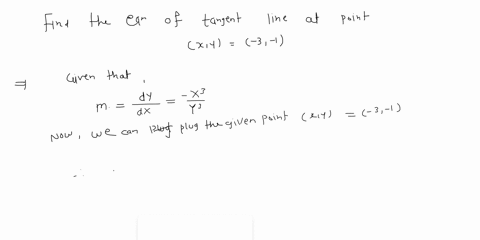 Find the eqn of tangent line at point
(x,y) = (-3,-1)
⇒ Given that,
m = dy/dx = -x³/y³
Now, we can plug the given point (x,y) = (-3,-1)